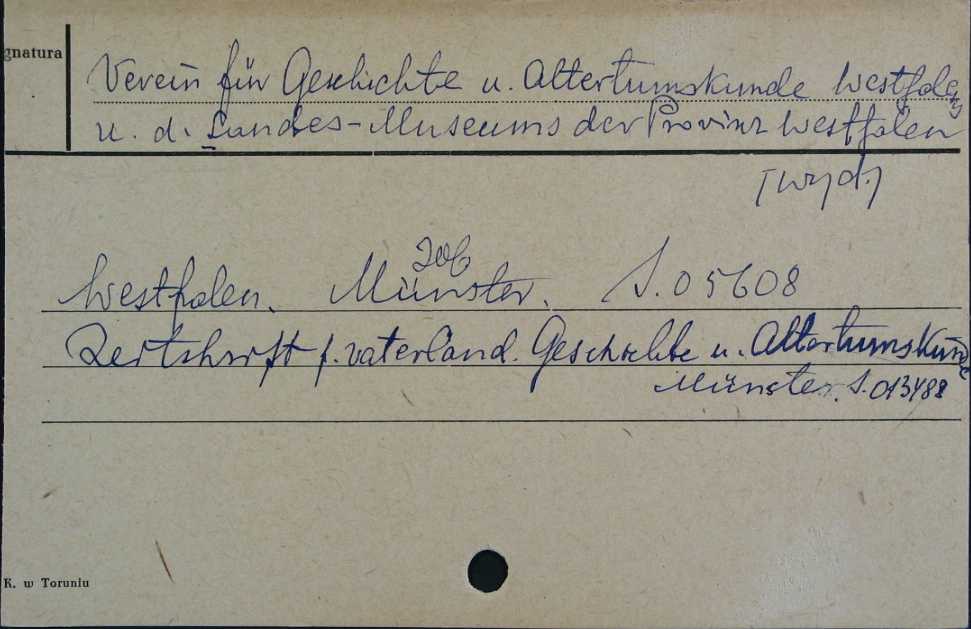 gnatura
Verein für Geschichte u. Altertumskunde Westfalens
u. d. Landes-Museums der Provinz Westfalen
[wyd.]
Westfalen. Münster. S. 05608
Zeitschrift f. vaterländ. Geschichte u. Altertumskunde
Münster. S. 013488
K. w Toruniu